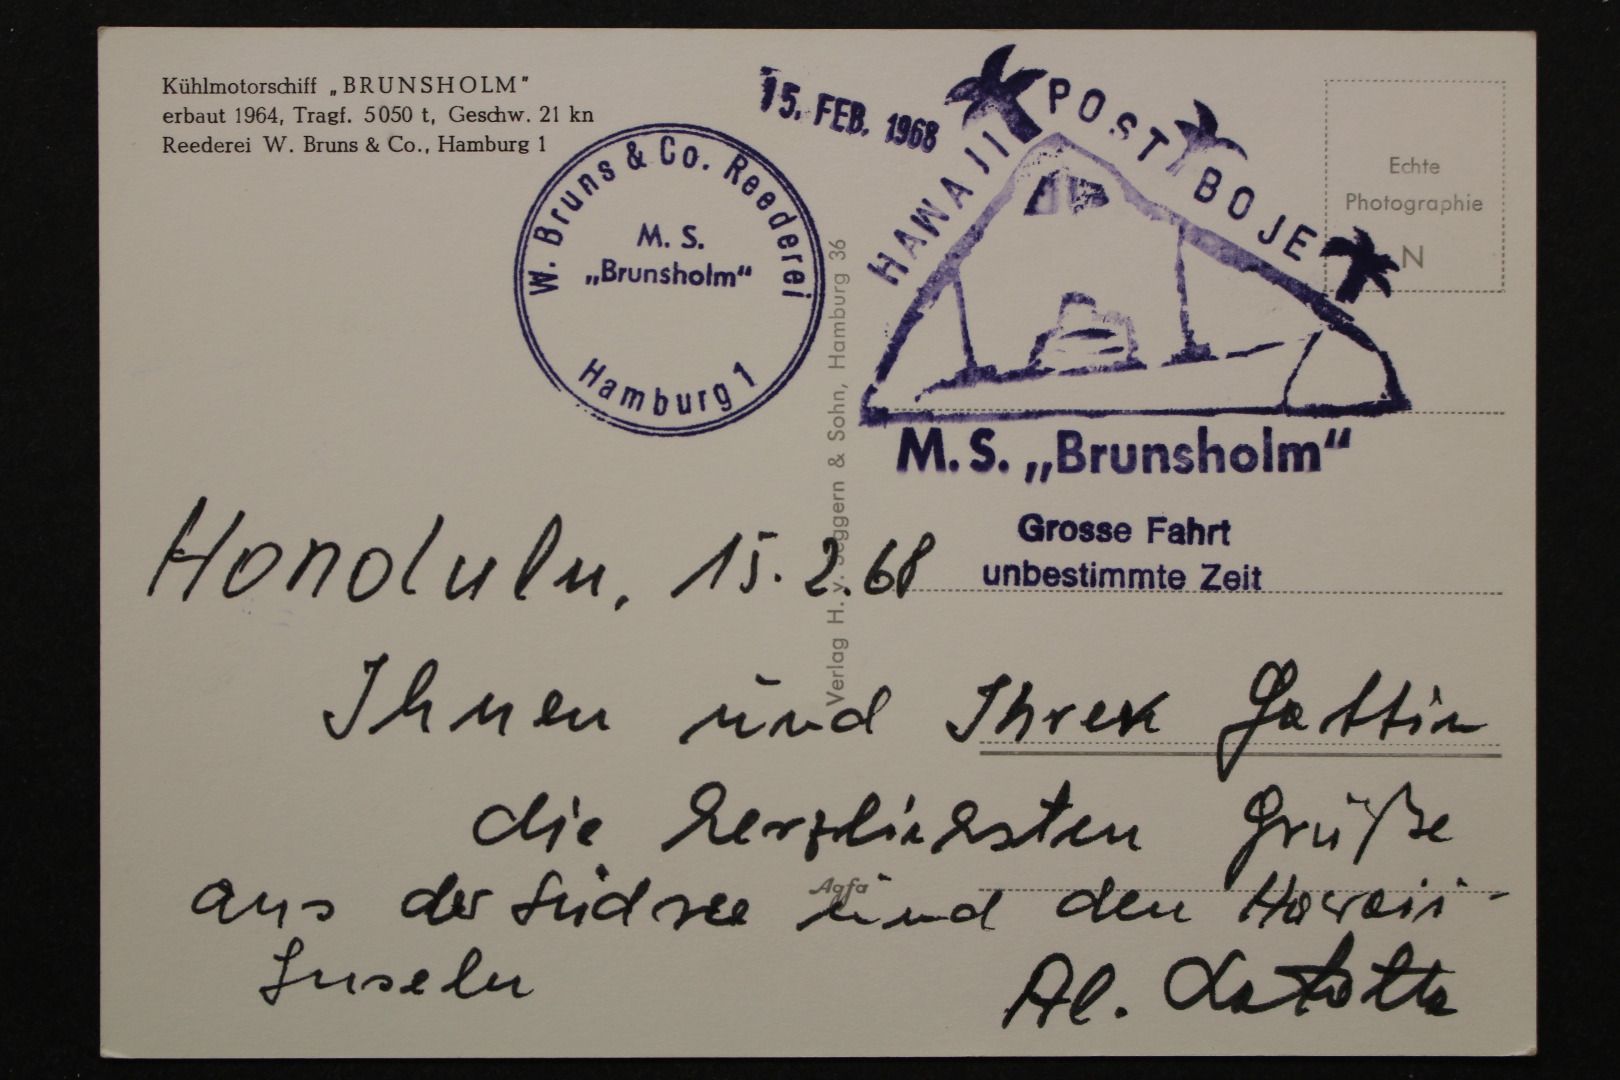 Kühlmotorschiff „BRUNSHOLM"
erbaut 1964, Tragf. 5050 t, Geschw. 21 kn
Reederei W. Bruns & Co., Hamburg 1
W. Bruns & Co. Reederei
M. S.
„Brunsholm“
Hamburg 1
15. FEB. 1968
HAWAJI POST BOJE
Echte
Photographie
N
M. S. „Brunsholm“
Grosse Fahrt
unbestimmte Zeit
Verlag H. v. Seggern & Sohn, Hamburg 36
Honolulu, 15.2.68
Ihnen und Ihrer Gattin
die herzlichsten Grüße
aus der Südsee und den Hawaii-
Inseln
Agfa
Al.